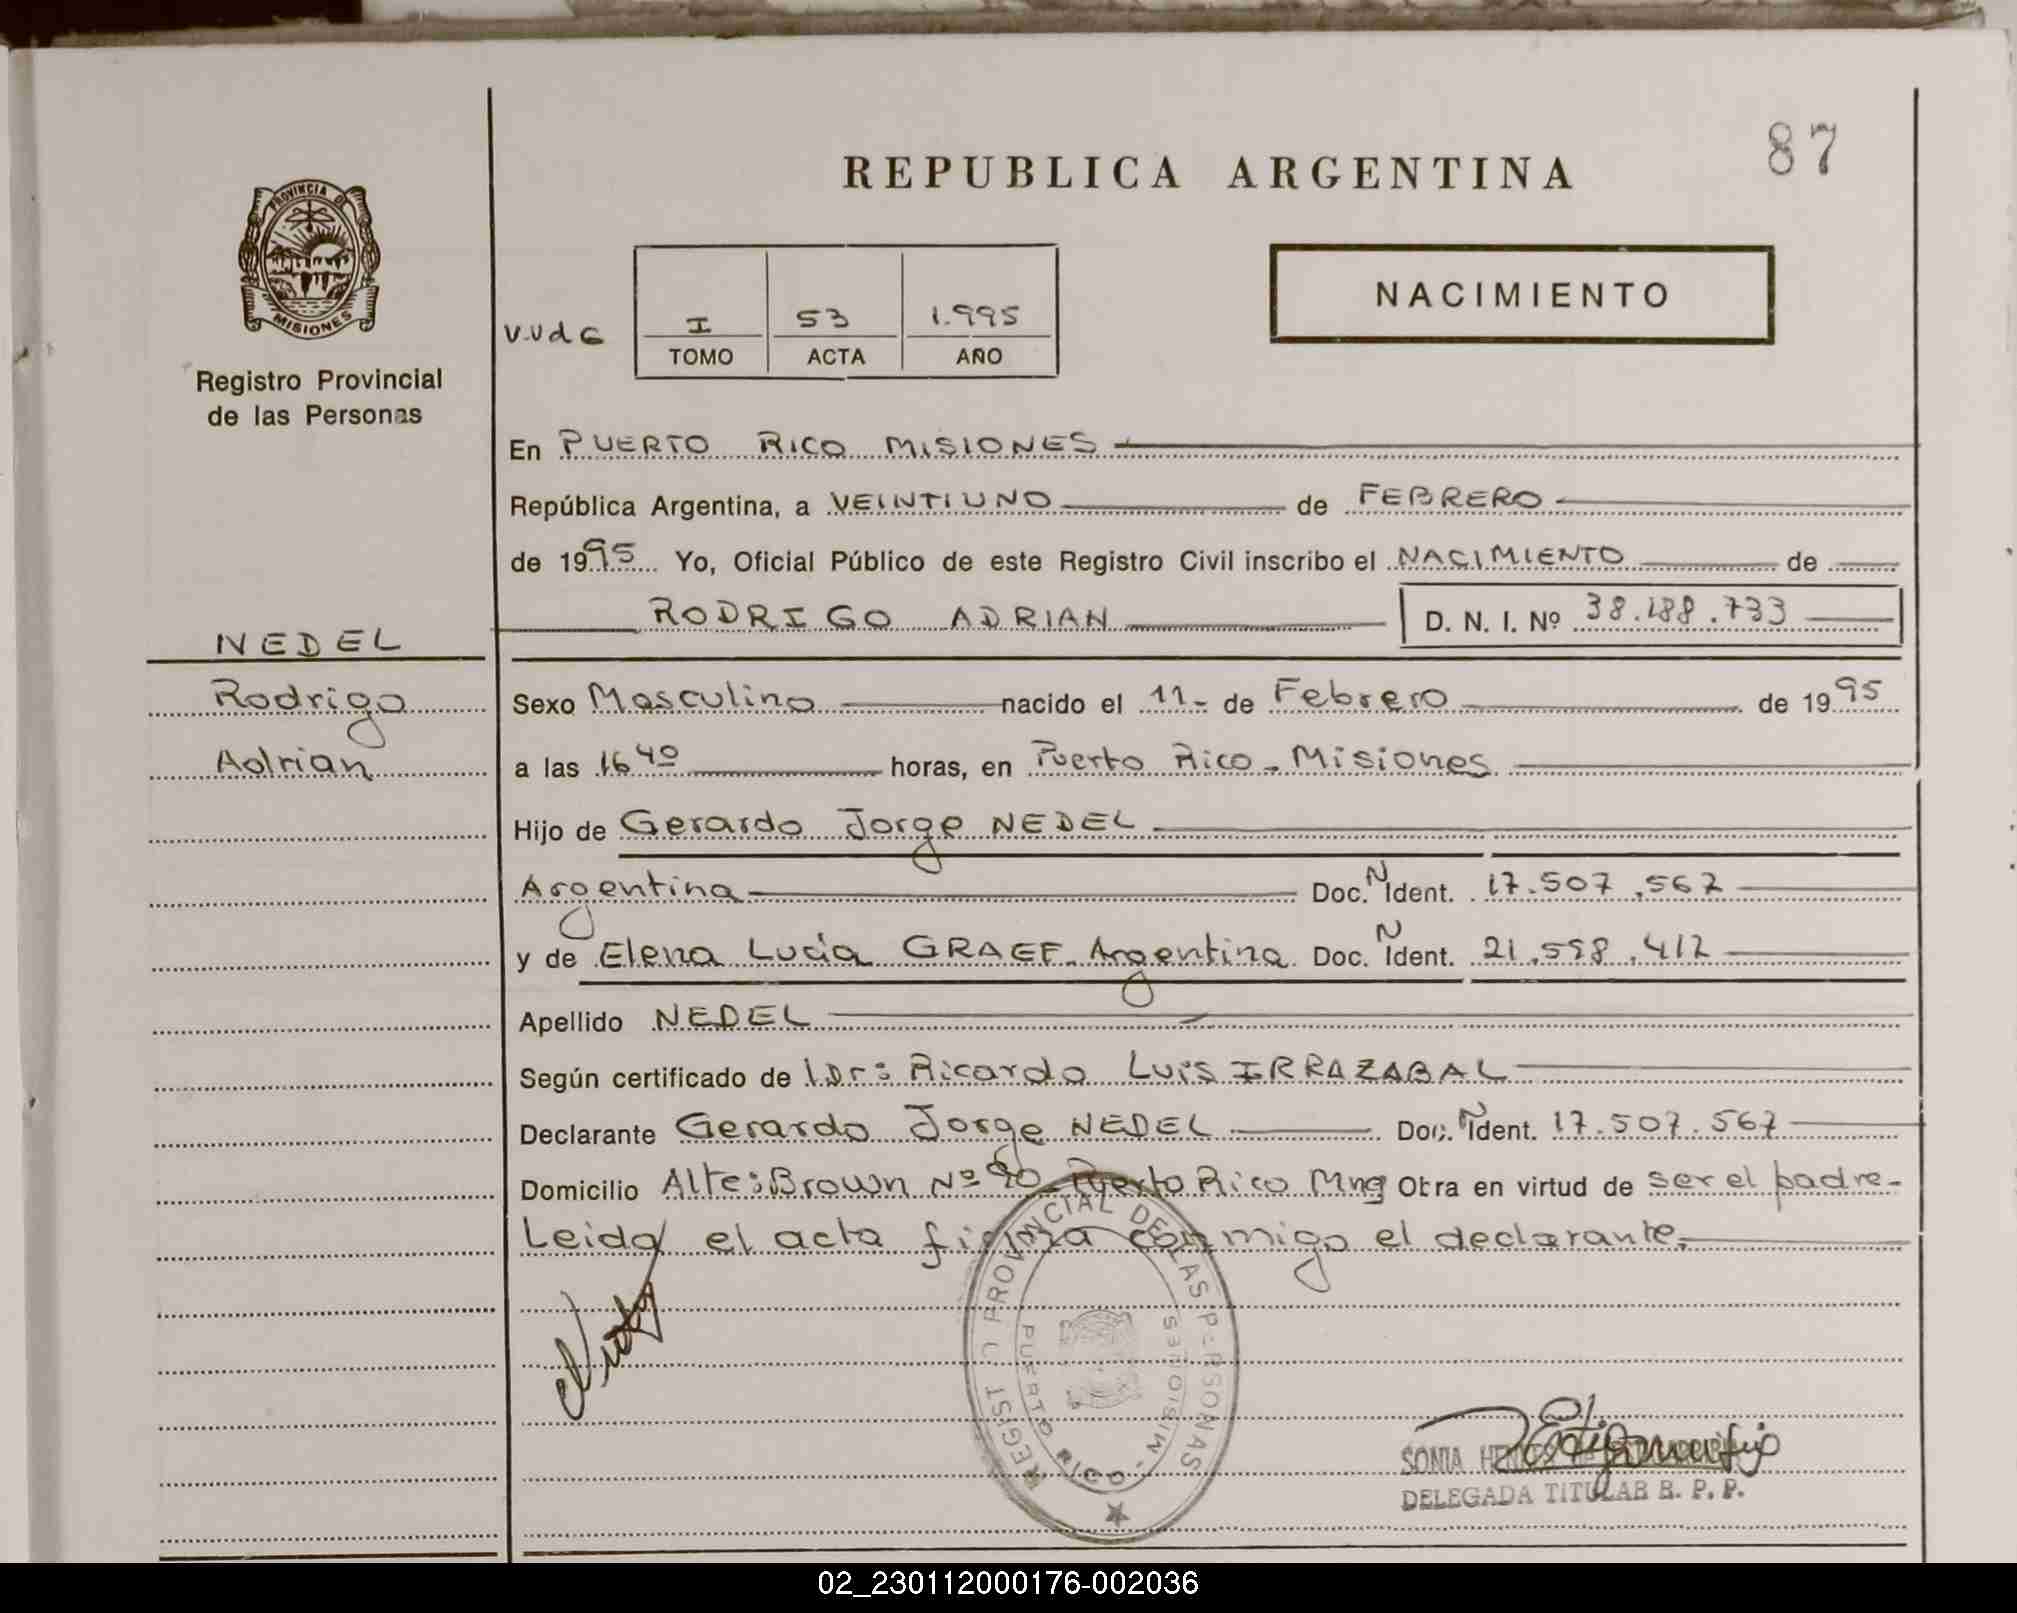 87
REPUBLICA ARGENTINA
PROVINCIA DE
MISIONES
Registro Provincial
de las Personas
NACIMIENTO
I 53 1.995
TOMO ACTA AÑO
En PUERTO RICO MISIONES
República Argentina, a VEINTIUNO de FEBRERO
de 1995 Yo, Oficial Público de este Registro Civil inscribo el NACIMIENTO de
RODRIGO ADRIAN D. N. I. Nº 38.188.733
NEDEL
Rodrigo
Adrian
Sexo Masculino nacido el 11- de Febrero de 1995
a las 16 40 horas, en Puerto Rico - Misiones
Hijo de Gerardo Jorge NEDEL
Argentina Doc. N Ident. 17.507.567
y de Elena Lucía GRAEF - Argentina Doc. N Ident. 21.598.412
Apellido NEDEL
Según certificado de Dr: Ricardo Luis IRRAZABAL
Declarante Gerardo Jorge NEDEL Doc. N Ident. 17.507.567
Domicilio Alte: Brown Nº 90 Puerto Rico Mnes Obra en virtud de ser el padre-
Leida el acta firma conmigo el declarante.
REGISTRO PROVINCIAL DE LAS PERSONAS
PUERTO RICO - MISIONES
SONIA
DELEGADA TITULAR R. P. P.
02_230112000176-002036